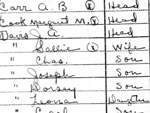 Carr A. B ① Head
Cook Margaret M. ① Head
Davis J. A. Head
" Sallie ① Wife
" Chas. Son
" Joseph Son
" Dorsey Son
" Leona Daughter
" Carl Son